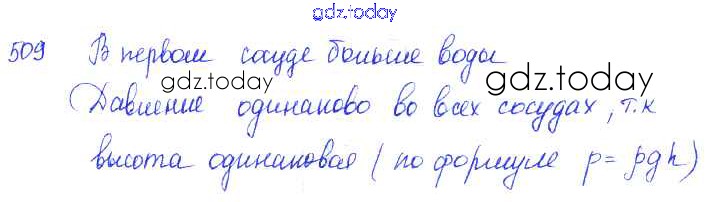 gdz.today
509 В первом сосуде больше воды
gdz.today gdz.today
Давление одинаково во всех сосудах, т.к
высота одинаковая (по формуле p = ρgh)